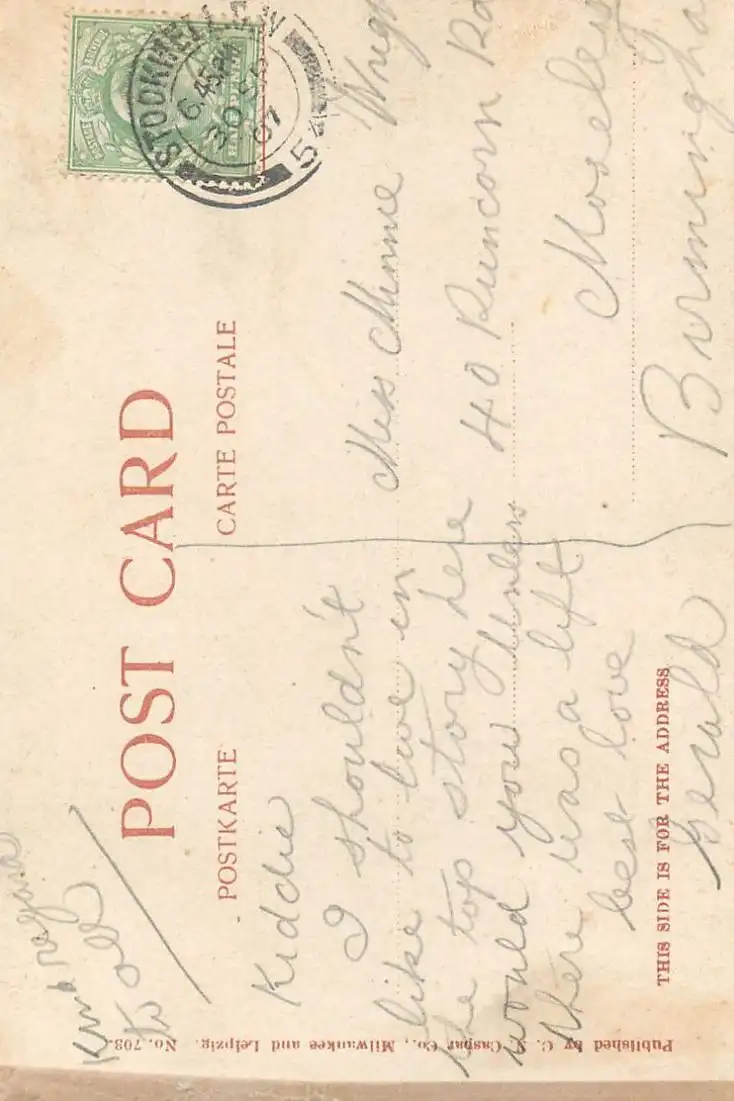 POST CARD
POSTKARTE
CARTE POSTALE
STOCKWELL
6.45 PM
30 SP
07
54
Kind regards
to all
Kiddie
I shouldn't
like to live in
the top story here
would you Unless
there was a lift
best love
Gerald
Miss Minnie Wright
40 Runcorn Rd
Moseley
Birmingham
THIS SIDE IS FOR THE ADDRESS
Published by C. N. Caspar Co., Milwaukee and Leipzig. No. 703.